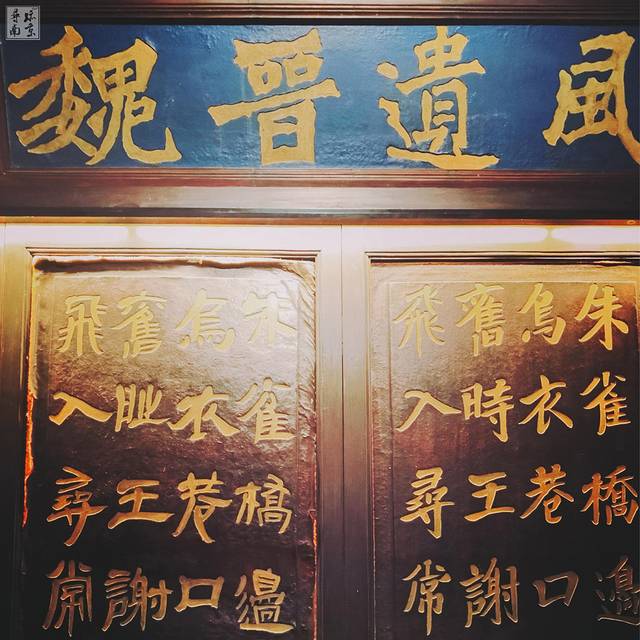 魏晉遺風
朱雀橋邊
烏衣巷口
舊時王謝
飛入尋常
朱雀橋邊
烏衣巷口
舊時王謝
飛入尋常